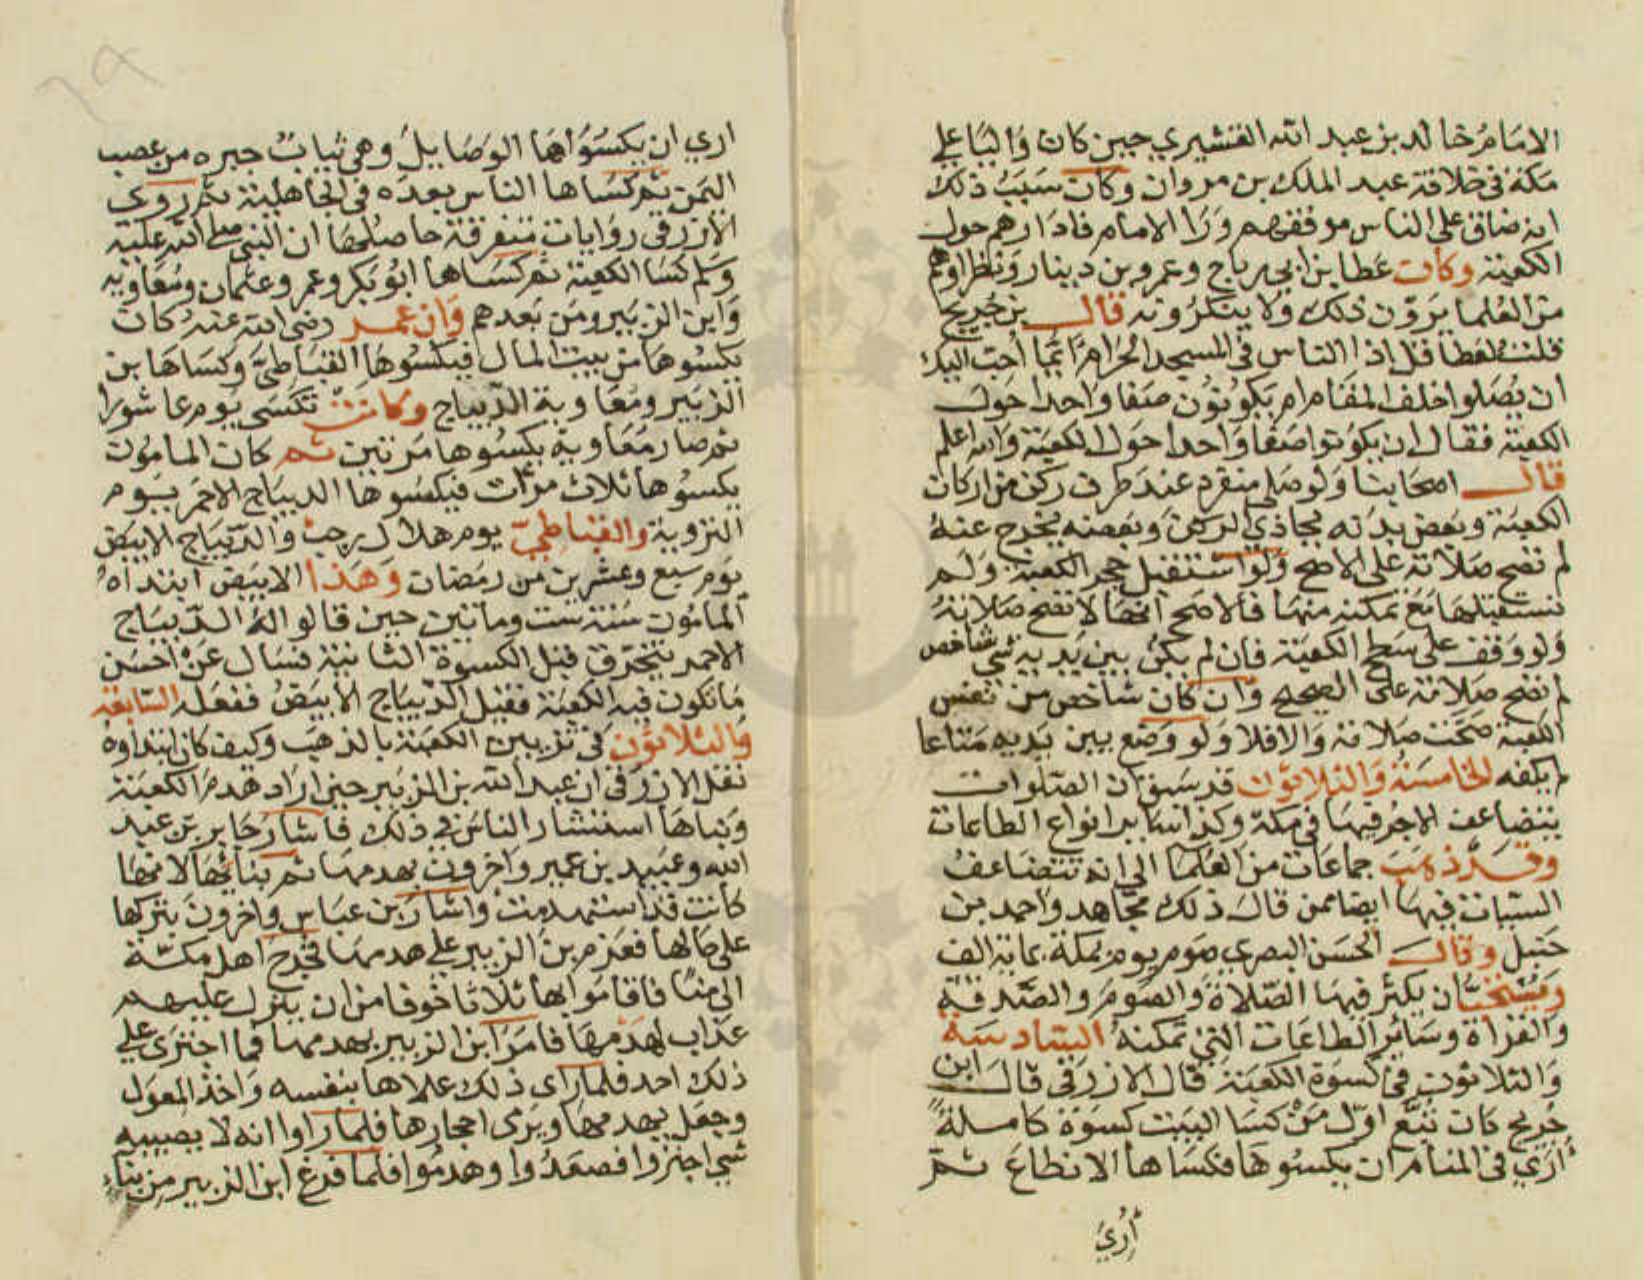 الامام خالد بن عبد الله القشيري حين كان واليا على
مكة في خلافة عبد الملك بن مروان وكان سبب ذلك
انه ضاق على الناس موقفهم ورا الامام فادارهم حول
الكعبة وكان عطا بن ابي رباح وعمرو بن دينار ونظراوهم
من العلما يرون ذلك ولا ينكرونه قال بن جريج
قلت لعطا قل اذا الناس في المسجد الحرام ايما احب اليك
ان يصلوا خلف المقام ام يكونون صفا واحدا حول
الكعبة فقال ان يكونوا صفا واحدا حول الكعبة والله اعلم
قال اصحابنا ولو صلى منفرد عند طرف ركن من اركان
الكعبة وبعض بدنه يحاذي الركن وبعضه يخرج عنه
لم تصح صلاته على الاصح ولو استقبل حجر الكعبة ولم
يستقبلها مع تمكنه منها فالاصح انها لا تصح صلاته
ولو وقف على سطح الكعبة فان لم يكن بين يديه شي شاخص
لم تصح صلاته على الصحيح وان كان شاخص من نفس
الكعبة صحت صلاته والا فلا ولو وضع بين يديه متاعا
لم يكفه الخامسة والثلاثون قد سبق ان الصلوات
يتضاعف الاجر فيها في مكة وكذا ساير انواع الطاعات
وقد ذهب جماعات من العلما الى انه تتضاعف
السيات فيها ايضا ممن قال ذلك مجاهد واحمد بن
حنبل وقال الحسن البصري صوم يوم بمكة بماية الف
ويستحب ان يكثر فيها الصلاة والصوم والصدقة
والقراة وساير الطاعات التي تمكنه السادسة
والثلاثون في كسوة الكعبة قال الازرقي قال ابن
جريج كان تبع اول من كسا البيت كسوة كاملة
اري في المنام ان يكسوها فكساها الانطاع ثم
اري
اري ان يكسوها الوصايل وهي ثياب حبره من عصب
اليمن ثم كساها الناس بعده في الجاهلية ثم روي
الازرقي روايات متفرقة حاصلها ان النبي صلى الله عليه
وسلم كسا الكعبة ثم كساها ابو بكر وعمر وعثمان ومعاويه
وابن الزبير ومن بعدهم وان عمر رضي الله عنه كان
يكسوها من بيت المال فيكسوها القباطي وكساها بن
الزبير ومعاوية الديباج وكانت تكسى يوم عاشورا
ثم صار معاوية يكسوها مرتين ثم كان المامون
يكسوها ثلاث مرات فيكسوها الديباج الاحمر يوم
التروية والقباطي يوم هلال رجب والديباج الابيض
يوم سبع وعشرين من رمضان وهذا الابيض ابتداه
المامون سنة ست وماتين حين قالوا له الديباج
الاحمر يتخرق قبل الكسوة الثانية فسال عن احسن
ما تكون فيه الكعبة فقيل الديباج الابيض ففعله السابعة
والثلاثون في تزيين الكعبة بالذهب وكيف كان ابتداوه
نقل الازرقي ان عبد الله بن الزبير حين اراد هدم الكعبة
وبناها استشار الناس في ذلك فاشار جابر بن عبد
الله وعبيد بن عمير واخرون بهدمها ثم بنائها لانها
كانت قد استهدمت واشار بن عباس واخرون بتركها
على حالها فعزم بن الزبير على هدمها فخرج اهل مكة
الى منًا فاقاموا بها ثلاثا خوفا من ان ينزل عليهم
عذاب لهدمها فامر ابن الزبير بهدمها فما اجترى على
ذلك احد فلما راى ذلك علاها بنفسه واخذ المعول
وجعل يهدمها ويرى احجارها فلما راوا انه لا يصيبه
شي اجتروا فصعدوا وهدموا فلما فرغ ابن الزبير من بناء